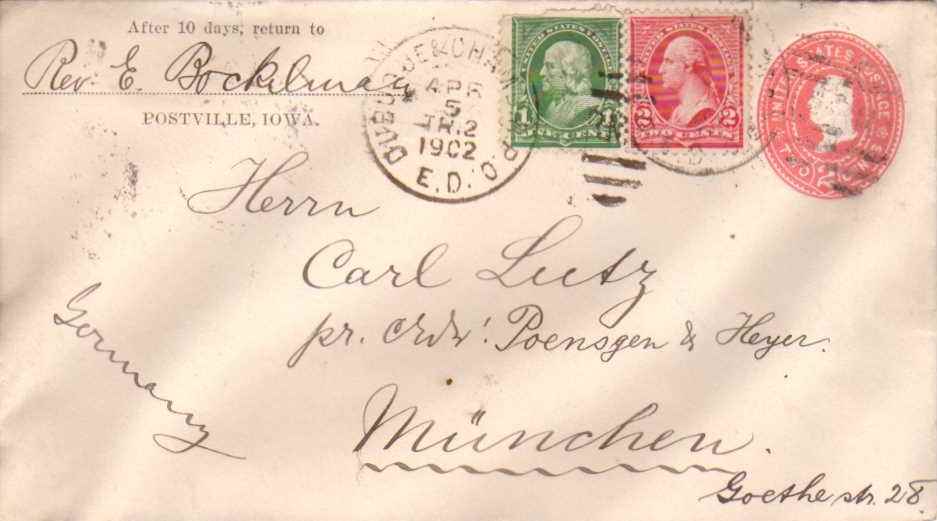 After 10 days, return to
Rev. E. Bockelman
POSTVILLE, IOWA.
DUBUQUE & CHA
APR
5
TR.2
1902
E.D.
R.P.O.
UNITED STATES POSTAGE
1 1
ONE CENT
UNITED STATES POSTAGE
2 2
TWO CENTS
UNITED STATES POSTAGE
TWO 2 CENTS
Herrn
Carl Lutz
pr. Adr: Poensgen & Heyer.
München.
Goethestr. 28.
Germany